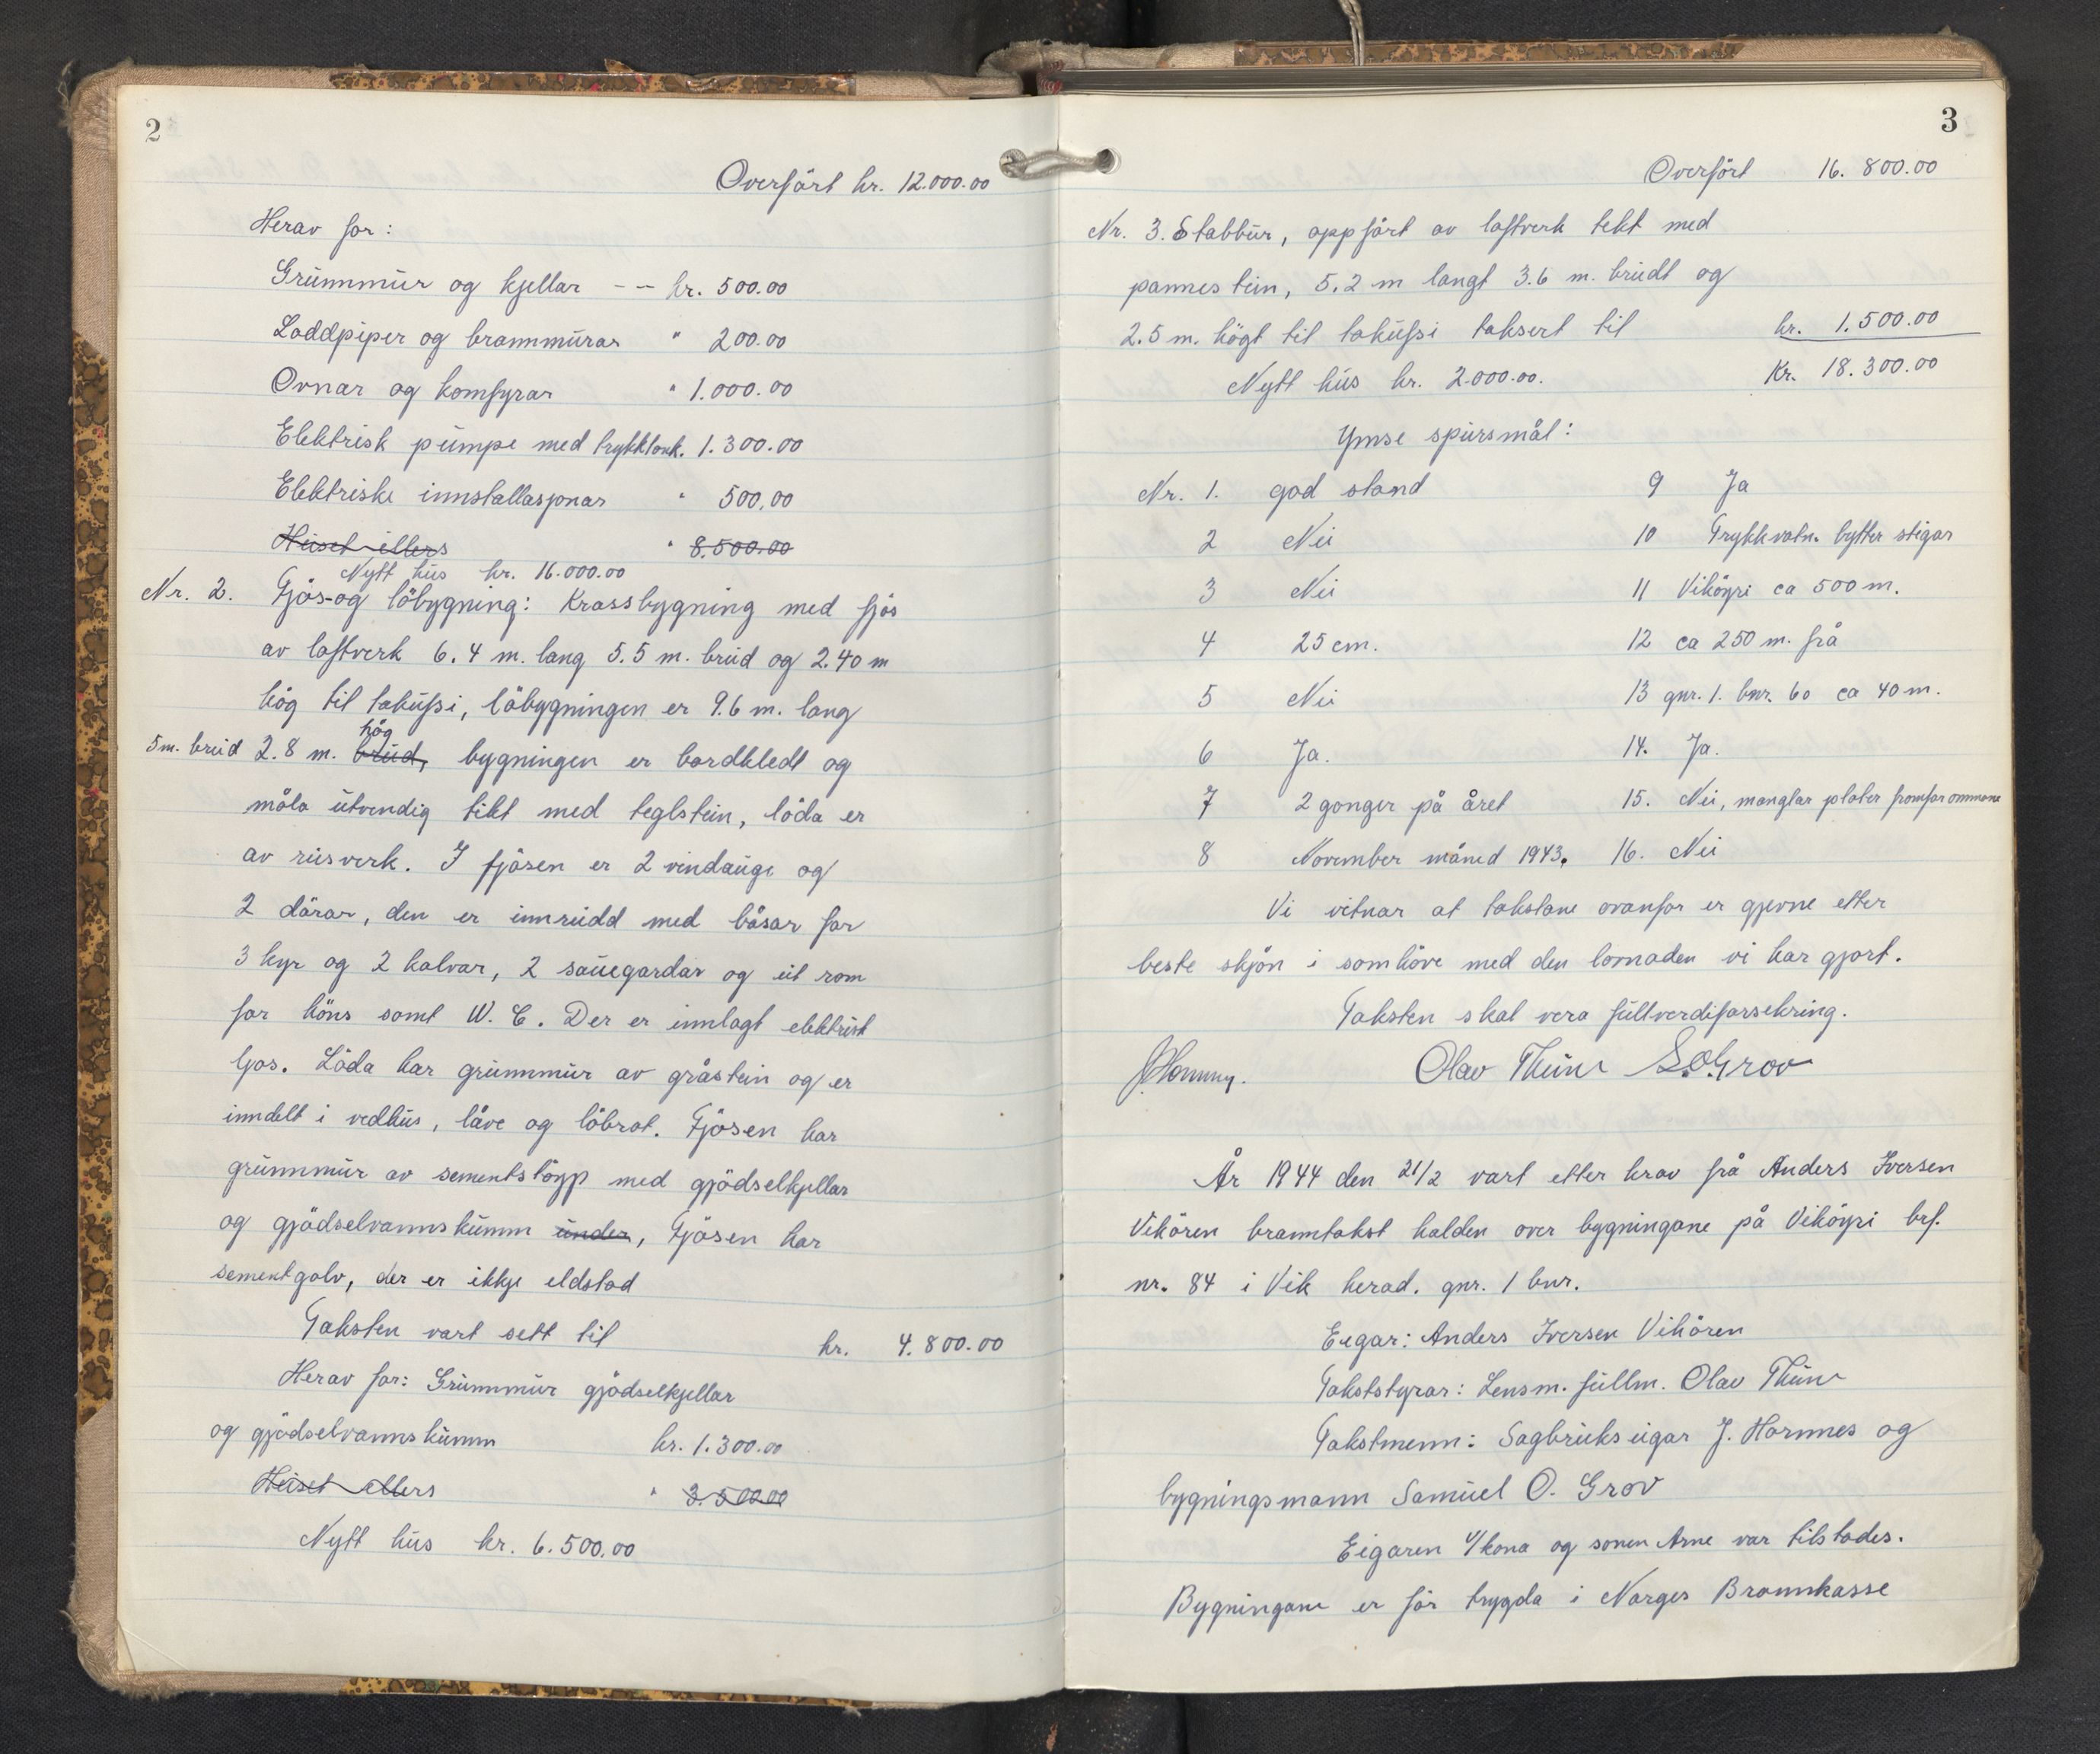 2
Overfört kr. 12.000.00
Herav for:
Grunnmur og kjellar -- kr. 500.00
Loddpiper og brannmurar " 200.00
Ovnar og komfyrar " 1.000.00
Elektrisk pumpe med trykktank. 1.300.00
Elektriske innstallasjonar " 500.00
Huset ellers " 8.500.00
Nytt hus kr. 16.000.00
Nr. 2. Fjös- og löbygning: Krossbygning med fjös
av laftverk 6.4 m. lang 5.5 m. breid og 2.40 m
hög til takufsi, löbygningen er 9.6 m. lang
hög
5 m. breid 2.8 m. breid, bygningen er bordkledt og
måla utvendig tekt med teglstein, löda er
av reisverk. I fjösen er 2 vindauge og
2 dörar, den er innreidd med båsar for
3 kyr og 2 kalvar, 2 sauegardar og eit rom
for höns samt W. C. Der er innlagt elektrisk
ljos. Löda har grunnmur av gråstein og er
inndelt i vedhus, låve og löbrot. Fjösen har
grunnmur av sementstöyp med gjödselkjellar
og gjödselvannskumm under, Fjösen har
sementgolv, der er ikkje eldstad
Taksten vart sett til kr. 4.800.00
Herav for: Grunnmur gjödselkjellar
og gjödselvannskumm kr. 1.300.00
Huset ellers " 3.500.00
Nytt hus kr. 6.500.00
3
Overfört 16.800.00
Nr. 3. Stabbur, oppfört av laftverk tekt med
pannestein, 5.2 m langt 3.6 m. breidt og
2.5 m. högt til takufsi taksert til kr. 1.500.00
Nytt hus kr. 2.000.00. Kr. 18.300.00
Ymse spursmål:
Nr. 1. god stand 9 Ja
2 Nei 10 Trykkvatn. bytter stigar
3 Nei 11 Viköyri ca 500 m.
4 25 cm. 12 ca 250 m. frå
5 Nei 13 gnr. 1. bnr. 60 ca 40 m.
6 Ja. 14. Ja.
7 2 gonger på året 15. Nei, manglar plater framfor omnane
8 November måned 1943. 16. Nei
Vi vitnar at takstane ovanfor er gjevne etter
beste skjön i samhöve med den lovnaden vi har gjort.
Taksten skal vera fullverdiforsekring.
Olav Thune S.O.Grov
År 1944 den 21/2 vart etter krav frå Anders Iversen
Vikören branntakst halden over bygningane på Viköyri brf.
nr. 84 i Vik herad. gnr. 1 bnr.
Eigar: Anders Iversen Vikören
Takststyrar: Lensm. fullm. Olav Thune
Takstmenn: Sagbrukseigar J. Hormnes og
bygningsmann Samuel O. Grov
Eigaren v/kona og sonen Arne var tilstades.
Bygningane er för trygda i Norges Brannkasse